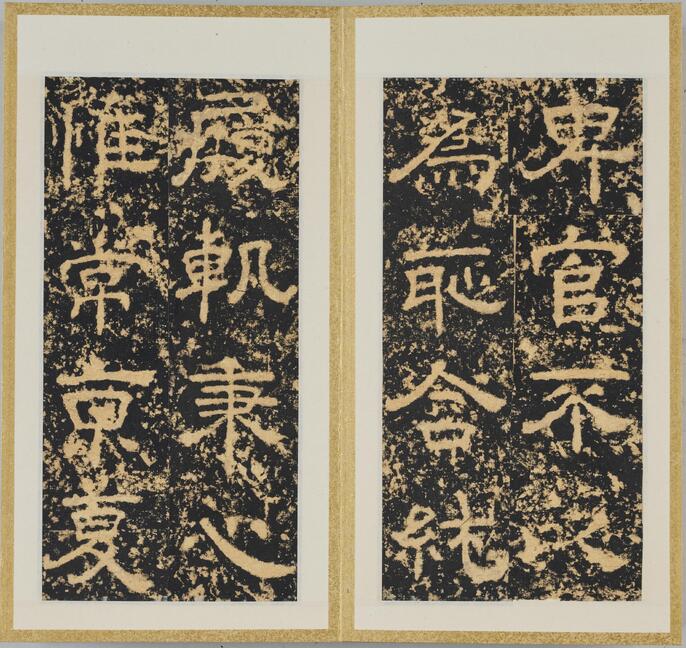 卑官不以
為恥含純
履軌秉心
惟常京夏